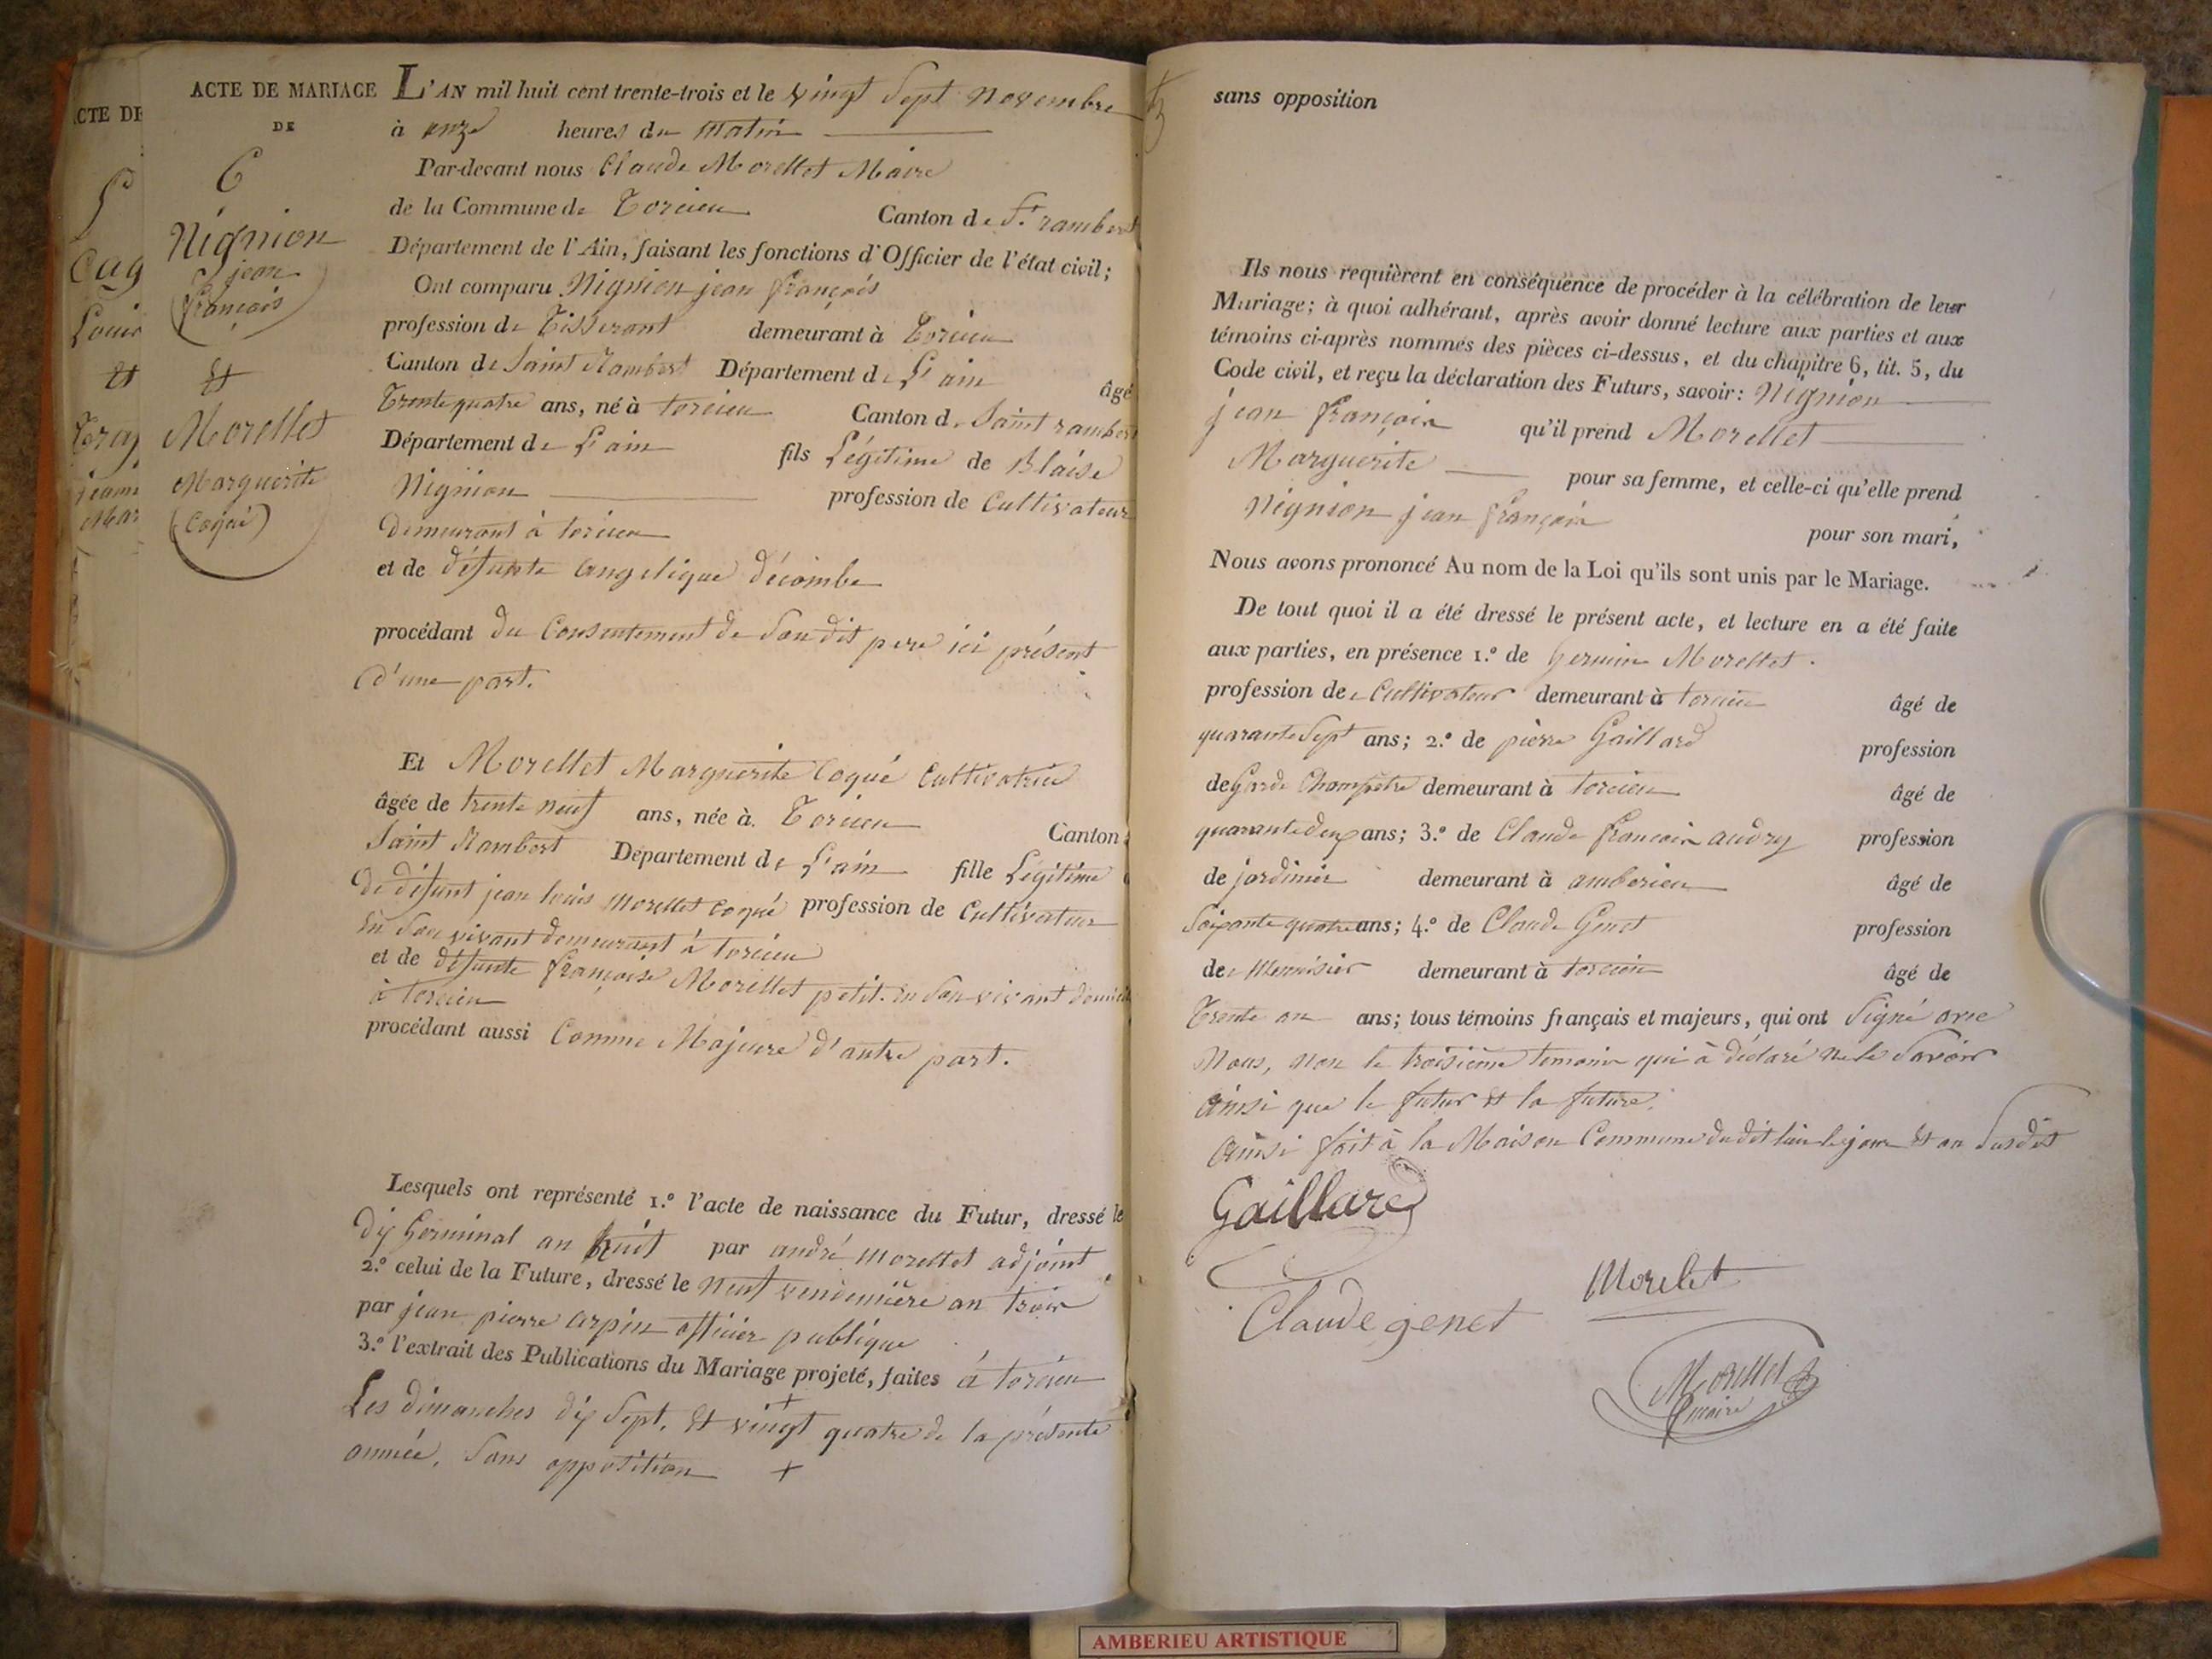 CTE DE
5
Cag
Louis
Et
Tray
jeann
Mar
ACTE DE MARIAGE
DE
6
Nignion
jean
(françois)
Et
Morellet
Marguerite
(Coqué)
L'AN mil huit cent trente-trois et le vingt Sept Novembre
à onze heures du Matin
Par-devant nous Claude Morellet Maire
de la Commune de Torcieu Canton de St. rambert
Département de l'Ain, faisant les fonctions d'Officier de l'état civil;
Ont comparu Nignion jean françois
profession de Tisserant demeurant à Torcieu
Canton de Saint Rambert Département de L'ain âgé
Trente quatre ans, né à torcieu Canton de Saint rambert
Département de L'ain fils Légitime de Blaise
Nignion profession de Cultivateur
Demeurant à torcieu
et de défunte Angelique Décombe
procédant du Consentement de Son dit pere ici présent
d'une part.
Et Morellet Marguerite Coqué Cultivatrice
âgée de trente neuf ans, née à Torcieu Canton
Saint Rambert Département de L'ain fille Légitime
De défunt jean louis Morellet Coqué profession de Cultivateur
En Son vivant demeurant à torcieu
et de défunte françoise Morellet petit. En Son vivant domicil
à torcieu
procédant aussi Comme Majeure d'autre part.
Lesquels ont représenté 1.º l'acte de naissance du Futur, dressé le
Dix Germinal an huit par andré Morellet adjoint
2.º celui de la Future, dressé le Neuf vendemière an trois
par jean pierre arpin officier publique
3.º l'extrait des Publications du Mariage projeté, faites à torcieu
Les dimanches dix Sept, Et vingt quatre de la présente
année, Sans opposition +
sans opposition
Ils nous requièrent en conséquence de procéder à la célébration de leur
Mariage; à quoi adhérant, après avoir donné lecture aux parties et aux
témoins ci-après nommés des pièces ci-dessus, et du chapitre 6, tit. 5, du
Code civil, et reçu la déclaration des Futurs, savoir: Nignion
jean françois qu'il prend Morellet
Marguerite pour sa femme, et celle-ci qu'elle prend
Nignion jean françois pour son mari,
Nous avons prononcé Au nom de la Loi qu'ils sont unis par le Mariage.
De tout quoi il a été dressé le présent acte, et lecture en a été faite
aux parties, en présence 1.º de Germin Morellet.
profession de Cultivateur demeurant à torcieu âgé de
quarante Sept ans; 2.º de pierre Gaillard profession
de Garde Champêtre demeurant à torcieu âgé de
quarante deux ans; 3.º de Claude françois audry profession
de jardinier demeurant à amberieu âgé de
Soixante quatre ans; 4.º de Claude Genet profession
de Menuisier demeurant à torcieu âgé de
Trente un ans; tous témoins français et majeurs, qui ont Signé avec
Nous, non le troisième temoin qui à déclaré ne le Savoir
Ainsi que le futur Et la future.
Ainsi fait à la Maison Commune du dit lieu le jour Et an Susdit
Gaillard
Morelet
Claude genet
Morellet
maire
AMBERIEU ARTISTIQUE